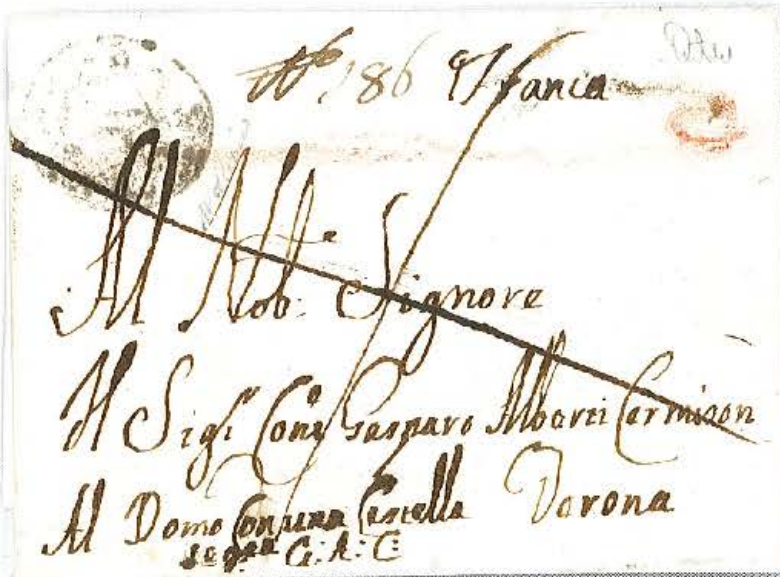 N° 186 Franca
Al Nob:e Signore
Il Sigr Conte Gasparo Alberti Carminon
Al Domo Con una Cascella Verona
segta G: A: C: